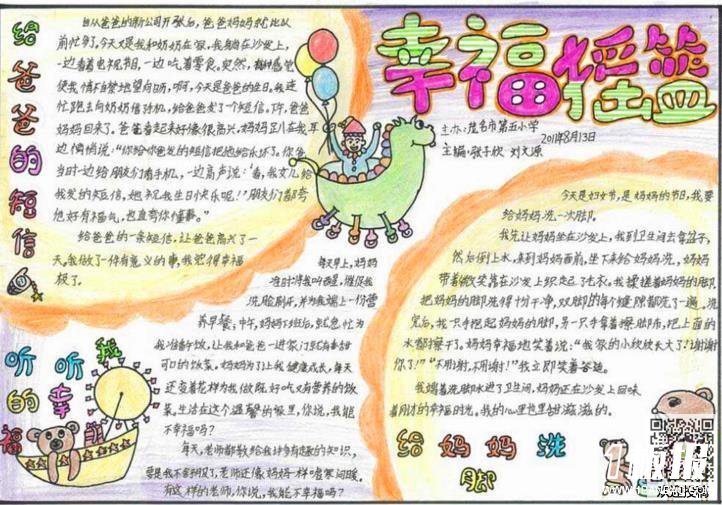 幸福摇篮
主办：茂名市第五小学
2011年3月13日
主编：张子欣 刘文源
给爸爸的短信
自从爸爸的新公司开张后，爸爸妈妈就比以
前忙多了。今天又是我和奶奶在家，我躺在沙发上，
一边看着电视节目，一边吃着零食。突然，
使我情不自禁地望向奶，啊，今天是爸爸的生日。我连
忙跑去向奶奶借手机，给爸爸发了个短信。下午，爸爸
妈妈回来了。爸爸看起来好像很高兴，妈妈足八在我耳
边悄悄说：“你给你爸发的短信把他给乐坏了。你爸
当时一边给朋友们看手机，一边高声说：‘看，我女儿给
我发的短信，她祝我生日快乐呢！’朋友们都夸
他好有福气，也直夸你懂事。”
给爸爸的一条短信，让爸爸高兴了一
天，我做了一件有意义的事，我觉得幸福
极了。
听听我的幸福
每天早上，妈妈
准时将我叫醒，催促我
洗脸刷牙，并为我端上一份营
养早餐；中午，妈妈下班后，就急忙为
我准备午饭，让我和爸爸一进家门就有香甜
可口的饭菜。妈妈为了让我健康成长，每天
还变着花样为我做既好吃又有营养的饭
菜。生活在这个温馨的家里，你说，我能
不幸福吗？
每天，老师都教给我许多有趣的知识，
要是我不舒服了，老师还像妈妈一样嘘寒问暖。
有这样的老师，你说，我能不幸福吗？
今天是妇女节，是妈妈的节日，我要
给妈妈洗一次脚。
我先让妈妈坐在沙发上，我到卫生间去拿盆子，
然后倒上水，来到妈妈面前，坐下来给妈妈洗，妈妈
带着微笑靠在沙发上织起了毛衣。我揉搓着妈妈的脚，
把妈妈的脚洗得十分干净，双脚的每个缝隙都洗了一遍，洗
完后，我一只手抱起妈妈的脚，另一只手拿着擦脚布，把上面的
水都擦干了。妈妈幸福地笑着说：“我家的小欣欣长大了！谢谢
你了！”“不用谢，不用谢！”我立即笑着答道。
我端着洗脚水进了卫生间，妈妈还在沙发上回味
着刚才的幸福时光。我的心里也里甘甘滋滋的。
给妈妈洗脚
欢迎投稿